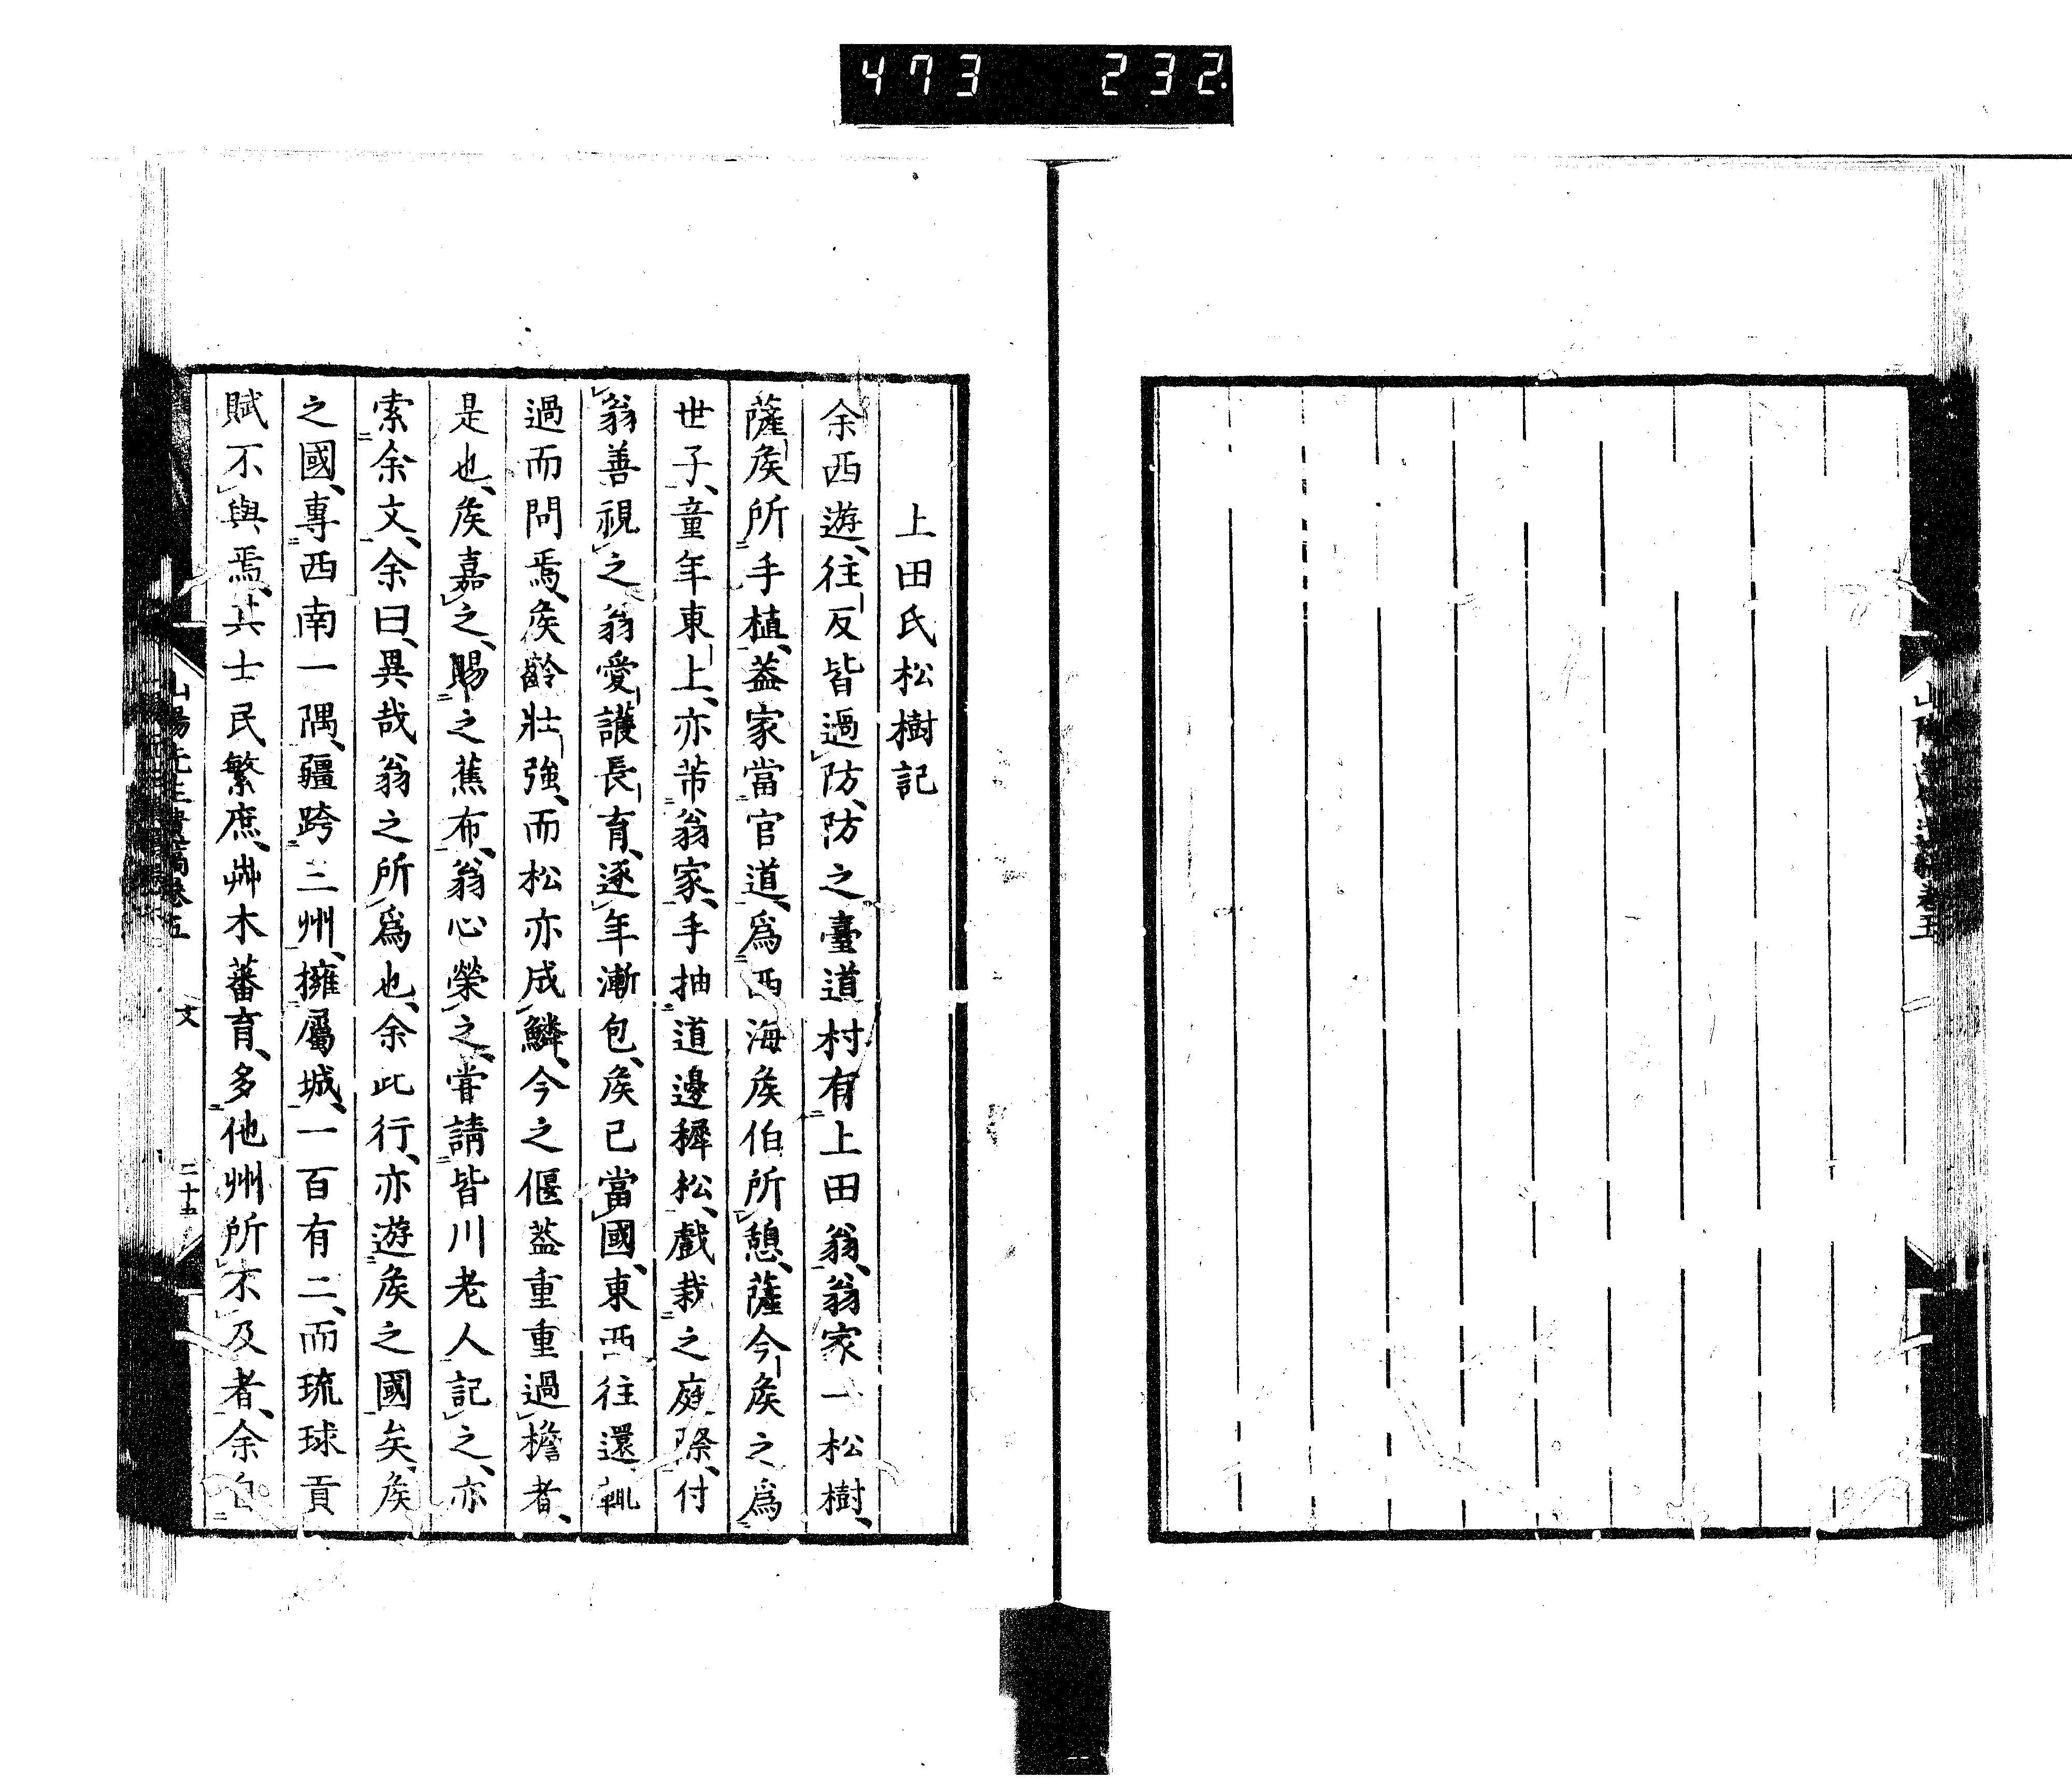 473 232.
上田氏松樹記
余西遊、往反皆過防、防之臺道村有上田翁、翁家一松樹、
薩矦所手植、葢家當官道、爲西海矦伯所憩、薩今矦之爲
世子、童年東上、亦芾翁家、手抽道邊穉松、戲栽之庭際、付
翁善視之、翁愛護長育、逐年漸包、矦已當國、東西往還、輒
過而問焉、矦齡壯強、而松亦成鱗、今之偃葢重重過檐者、
是也、矦嘉之、賜之蕉布、翁心榮之、嘗請皆川老人記之、亦
索余文、余曰、異哉翁之所爲也、余此行、亦遊矦之國矣、矦
之國、專西南一隅、疆跨三州、擁屬城、一百有二、而琉球貢
賦不與焉、其士民繁庶、艸木蕃育、多他州所不及者、余自
山陽先生遺稿卷五
文
二十五